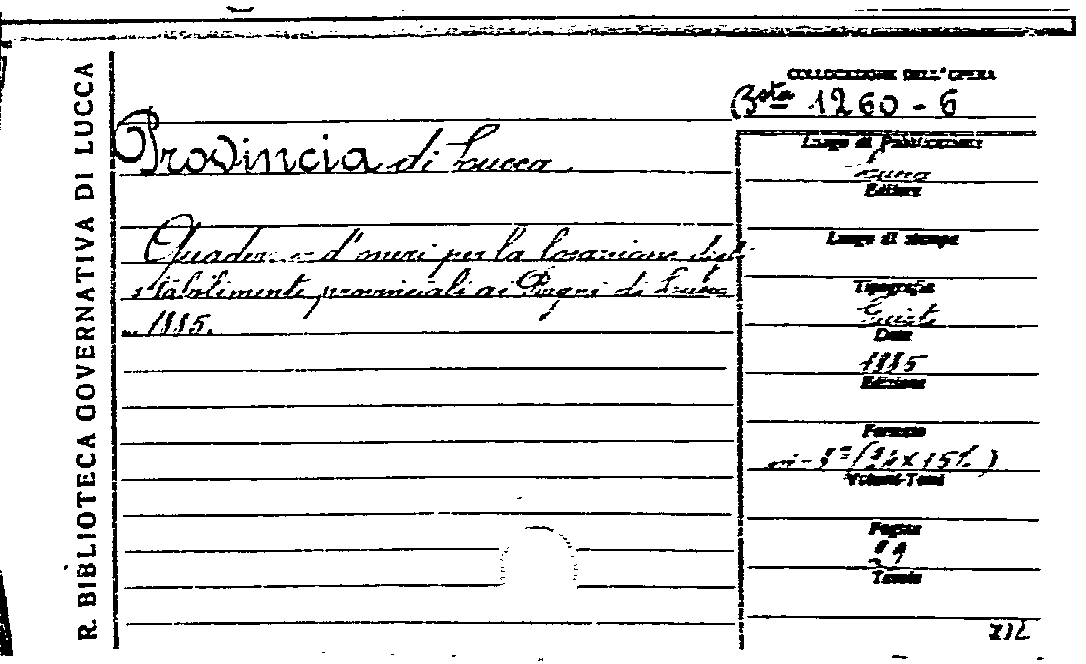 R. BIBLIOTECA GOVERNATIVA DI LUCCA
COLLOCAZIONE DELL'OPERA
Bsta 1260 - 6
Provincia di Lucca
Quaderno d'oneri per la locazione degli
stabilimenti provinciali ai Bagni di Lucca
1885.
Luogo di Pubblicazione
Lucca
Editore
Luogo di stampa
Tipografia
Giusti
Data
1885
Edizione
Formato
in-8° (24 x 15½)
Volumi-Tomi
Pagine
Tavole